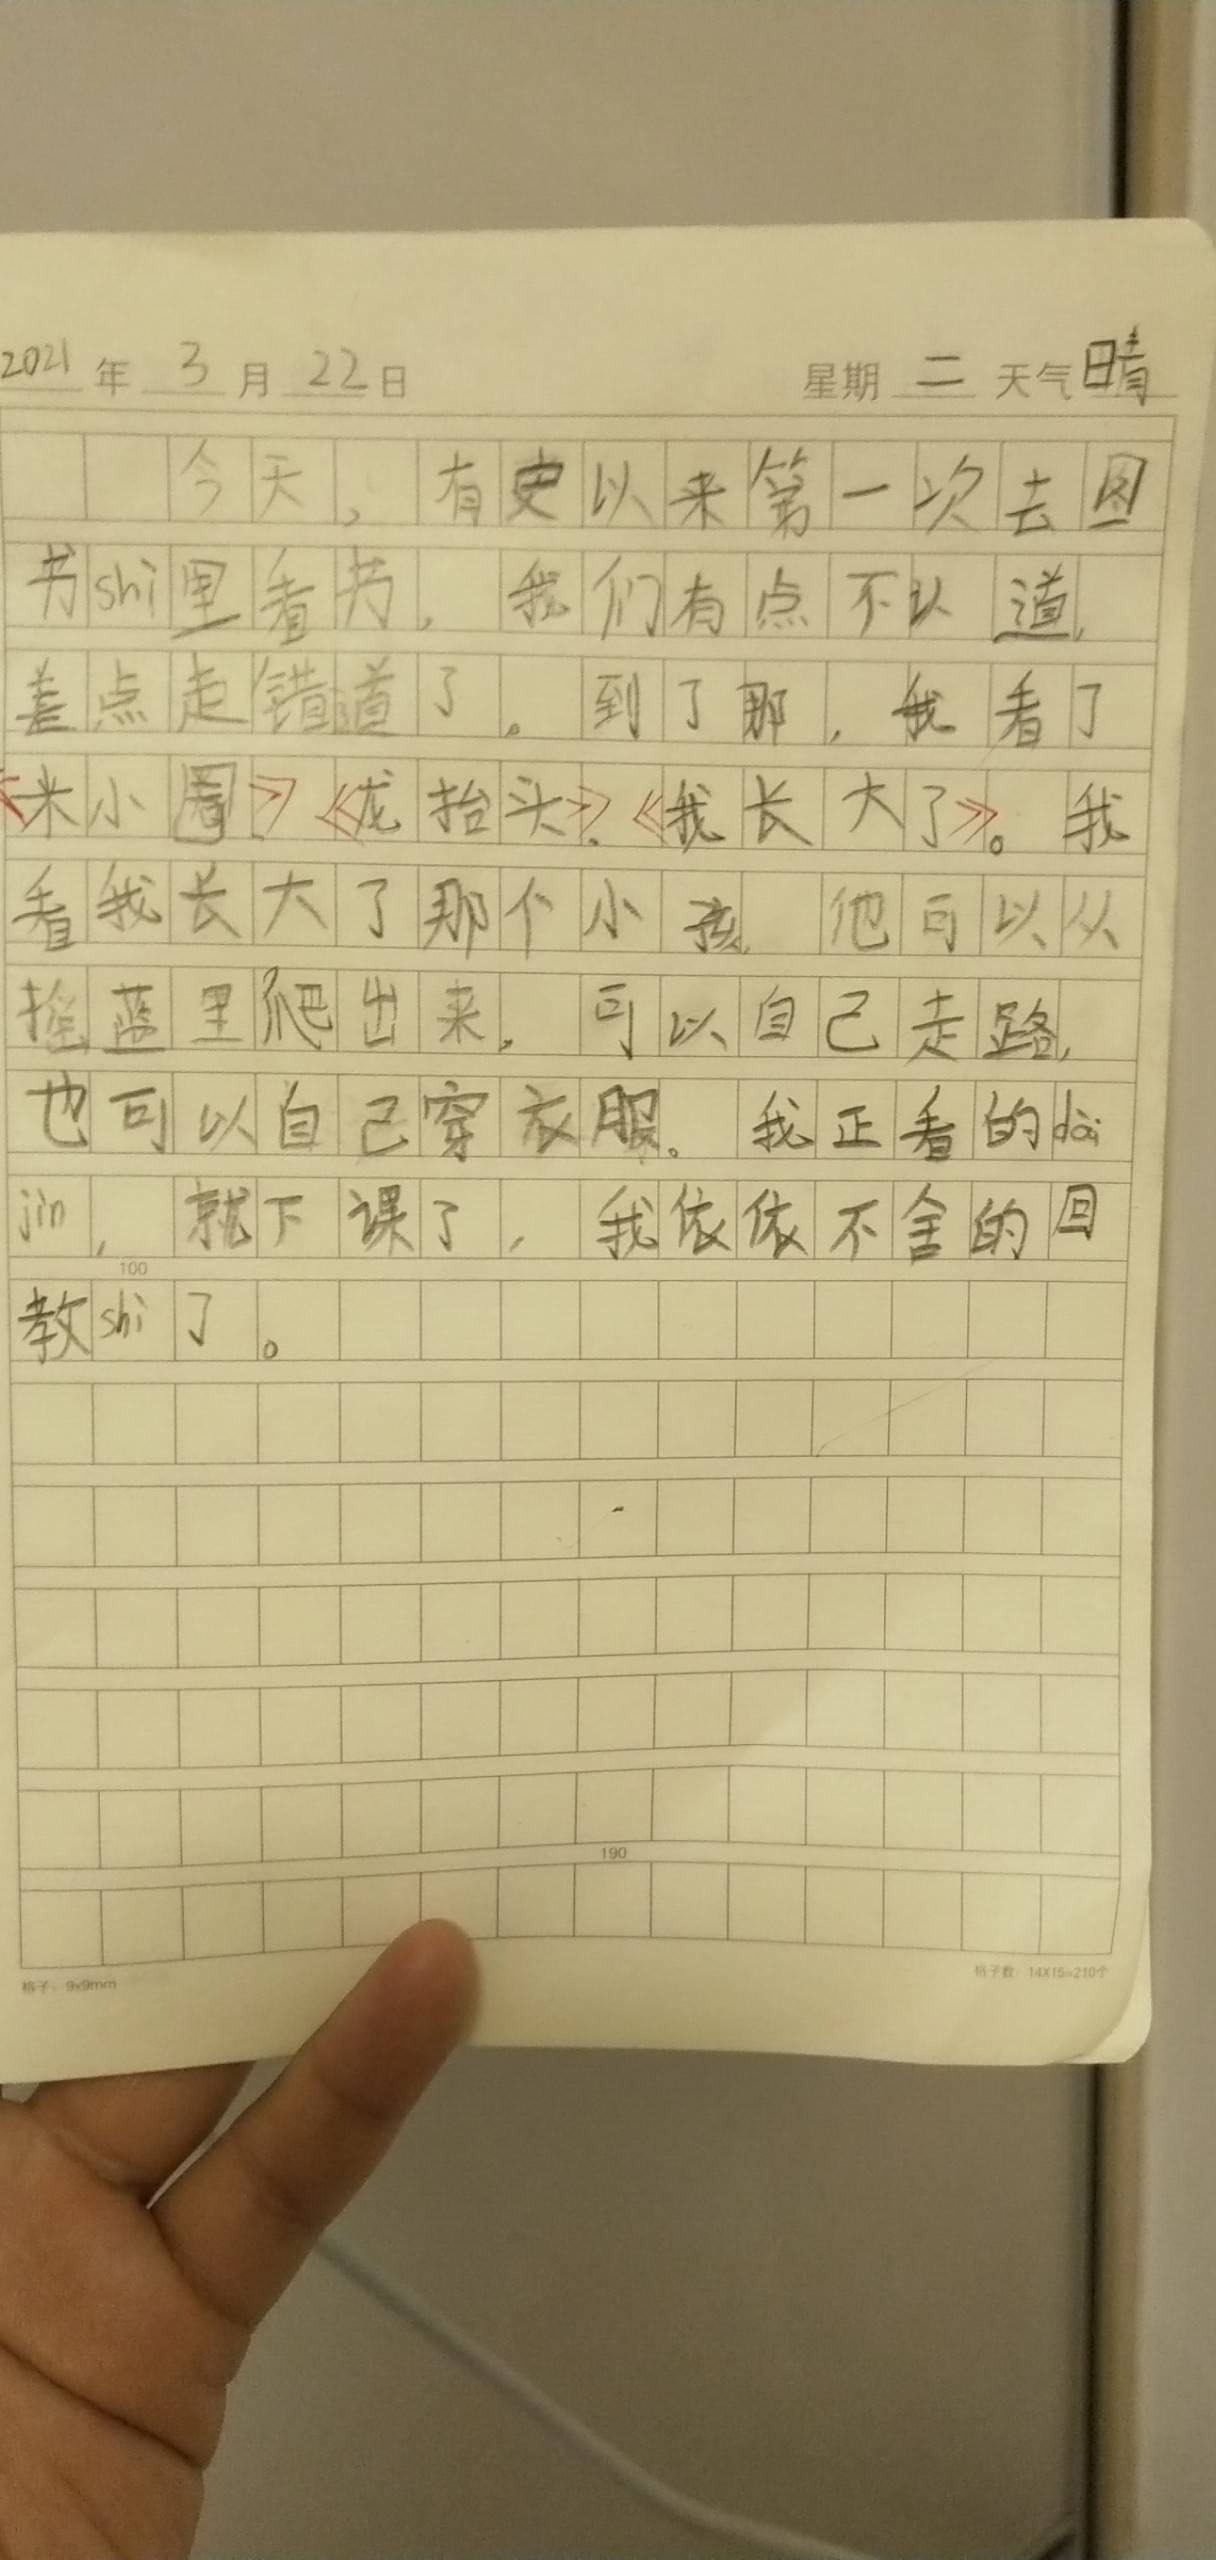 2021年3月22日 星期二 天气晴
今天，有史以来第一次去图
书shi里看书，我们有点不认道，
差点走错道了。到了那，我看了
《米小圈》、《龙抬头》、《我长大了》。我
看我长大了那个小孩，他可以从
摇蓝里爬出来，可以自己走路，
也可以自己穿衣服。我正看的dai
jin，就下课了，我依依不舍的回
100
教shi了。
190
格子：9x9mm 格子数：14X15=210个